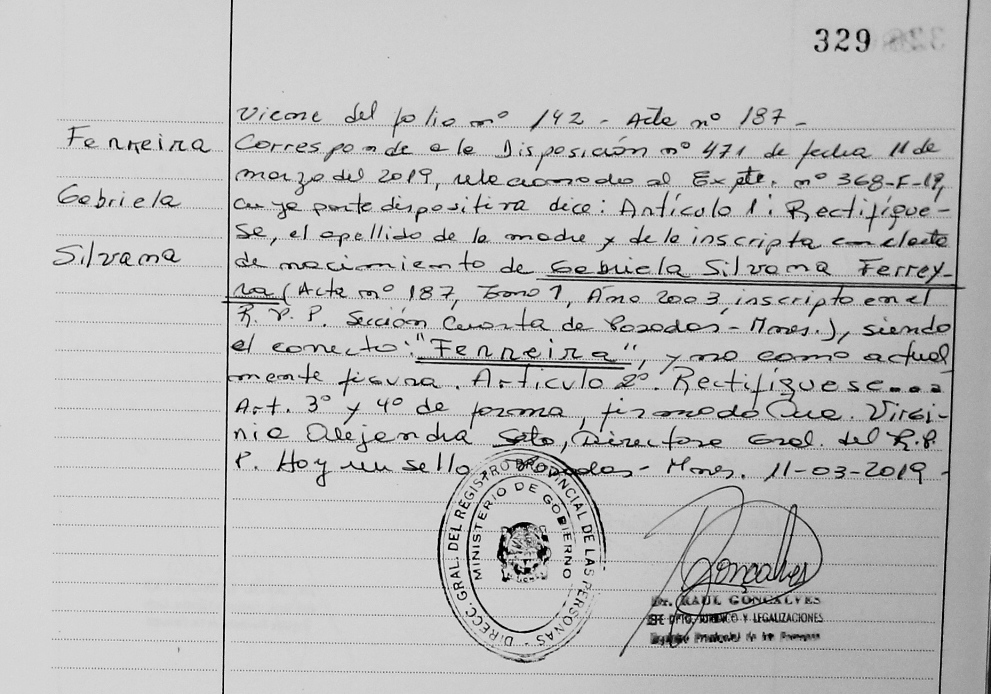 329
Ferreira
Gabriela
Silvana
Viene del folio nº 142 - Acta nº 187 -
Corresponde a la Disposición nº 471 de fecha 11 de
marzo del 2019, relacionado al Expte. nº 368-F-19,
cuya parte dispositiva dice: Artículo 1: Rectifíque-
se, el apellido de la madre y de la inscripta en el acta
de nacimiento de Gabriela Silvana Ferrey-
ra (Acta nº 187, Tomo 1, Año 2003, inscripto en el
R. P. P. Sección Cuarta de Posadas - Mnes.), siendo
el correcto: "Ferreira", y no como actual
mente figura. Artículo 2º. Rectifíquese....
Art. 3º y 4º de forma, firmado Dra. Virgi-
nia Alejandra Soto, Directora Gral. del R. P.
P. Hay un sello Posadas - Mnes. 11-03-2019 -
DIRECC. GRAL. DEL REGISTRO PROVINCIAL DE LAS PERSONAS -
MINISTERIO DE GOBIERNO
Gonçalves
Dr. RAUL GONÇALVES
JEFE DPTO. JURIDICO Y LEGALIZACIONES
Registro Provincial de las Personas